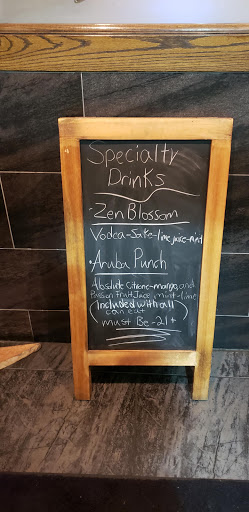 Specialty
Drinks
·Zen Blossom
Vodca-Sake-lime juice-mint
·Aruba Punch
Absolute Citrone-mango, and
Passion fruit Juce mint-lime
(Included with all
can eat
must Be-21+